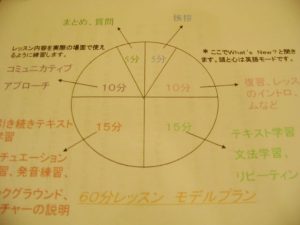 まとめ、質問
挨拶
レッスン内容を実際の場面で使え
るように練習します。
* ここでWhat's New?と聞き
ます。頭と心は英語モードです。
コミュニカティブ
アプローチ
5分
5分
10分
10分
復習、レッス
のイントロ、
ムなど
引き続きテキスト
学習
15分
15分
テキスト学習
文法学習、
リピーティン
チュエーション
習、発音練習、
ックグラウンド、
チャーの説明
60分レッスン モデルプラン